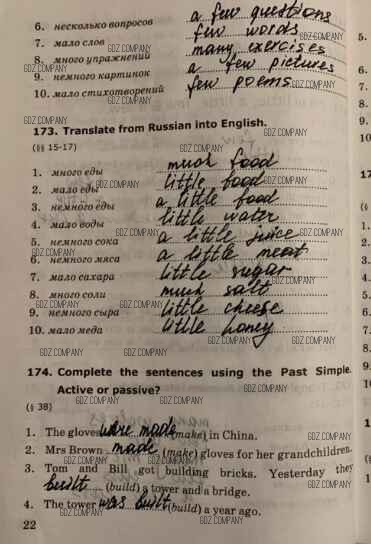 6. несколько вопросов a few questions
7. мало слов few words
8. много упражнений many exercises
9. немного картинок a few pictures
10. мало стихотворений few poems
173. Translate from Russian into English.
(§§ 15-17)
1. много еды much food
2. мало еды little food
3. немного еды a little food
4. мало воды little water
5. немного сока a little juice
6. немного мяса a little meat
7. мало сахара little sugar
8. много соли much salt
9. немного сыра little cheese
10. мало меда little honey
174. Complete the sentences using the Past Simple.
Active or passive?
(§ 38)
1. The gloves were made (make) in China.
2. Mrs Brown made (make) gloves for her grandchildren.
3. Tom and Bill got building bricks. Yesterday they
built (build) a tower and a bridge.
4. The tower was built (build) a year ago.
22
GDZ.COMPANY